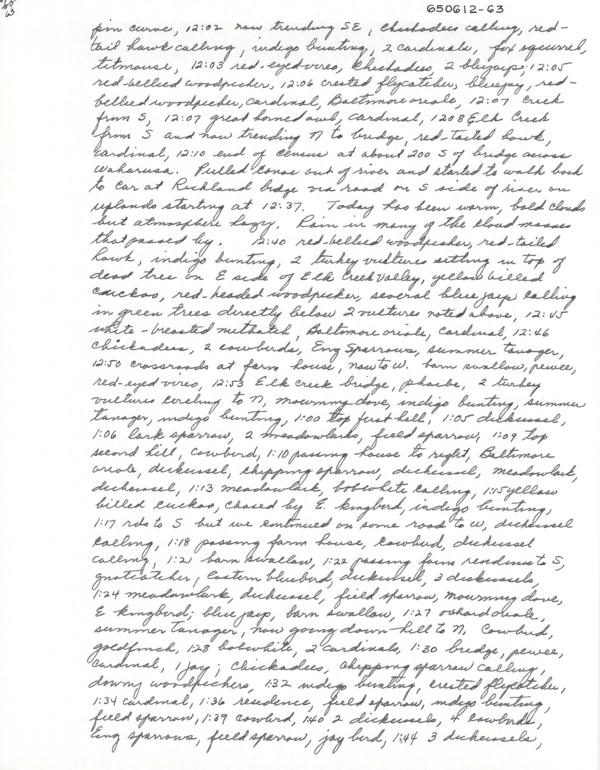 650612-63
pin curve, 12:02 now trending SE, chickadees calling, red-
tail hawk calling, indigo bunting, 2 cardinals, fox squirrel,
titmouse, 12:03 red-eyed vireo, chickadees, 2 bluejays; 12:05
red-bellied woodpecker, 12:06 crested flycatcher, bluejay, red-
bellied woodpecker, cardinal, Baltimore oriole, 12:07 creek
from S, 12:07 great horned owl, cardinal, 1208 Elk Creek
from S and now trending N to bridge, red-tailed hawk,
cardinal, 12:10 end of census at about 200 S of bridge across
Wakarusa. Pulled canoe out of river and started to walk back
to car at Richland bridge via road on S side of river on
uplands starting at 12:37. Today has been warm, bold clouds
but atmosphere hazy. Rain in many of the cloud masses
that passed by. 12:40 red-bellied woodpecker, red-tailed
hawk, indigo bunting, 2 turkey vultures sitting in top of
dead tree on E side of Elk Creek Valley, yellow billed
cuckoo, red-headed woodpecker, several blue jays calling
in green trees directly below 2 vultures noted above, 12:45
white-breasted nuthatch, Baltimore oriole, cardinal, 12:46
chickadees, 2 cowbirds, Eng Sparrows, summer tanager,
12:50 crossroads at farm house, now to W. barn swallow, pewee,
red-eyed vireo, 12:53 Elk Creek bridge, phoebe, 2 turkey
vultures circling to N, mourning dove, indigo bunting, summer
tanager, indigo bunting, 1:00 top first hill, 1:05 dickcissel,
1:06 lark sparrow, 2 meadowlarks, field sparrow, 1:09 top
second hill, cowbird, 1:10 passing house to right, Baltimore
oriole, dickcissel, chipping sparrow, dickcissel, meadowlark,
dickcissel, 1:13 meadowlark, bobwhite calling, 1:15 yellow
billed cuckoo, chased by E. kingbird, indigo bunting,
1:17 rds to S but we continued on some road to W, dickcissel
calling, 1:18 passing farm house, cowbird, dickcissel
calling, 1:21 barn swallow, 1:22 passing farm residence to S,
gnatcatcher, Eastern bluebird, dickcissel, 3 dickcissels,
1:24 meadowlark, dickcissel, field sparrow, mourning dove,
E kingbird; blue jays, barn swallow, 1:27 orchard oriole,
summer tanager, now going down hill to N, cowbird,
goldfinch, 1:28 bobwhite, 2 cardinals, 1:30 bridge, pewee,
cardinal, 1 jay; chickadees, chipping sparrow calling,
downy woodpeckers, 1:32 indigo bunting, crested flycatcher,
1:34 cardinal, 1:36 residence, field sparrow, indigo bunting,
field sparrow, 1:39 cowbird, 1:40 2 dickcissels, 4 cowbirds,
Eng sparrows, field sparrow, jay bird, 1:44 3 dickcissels,